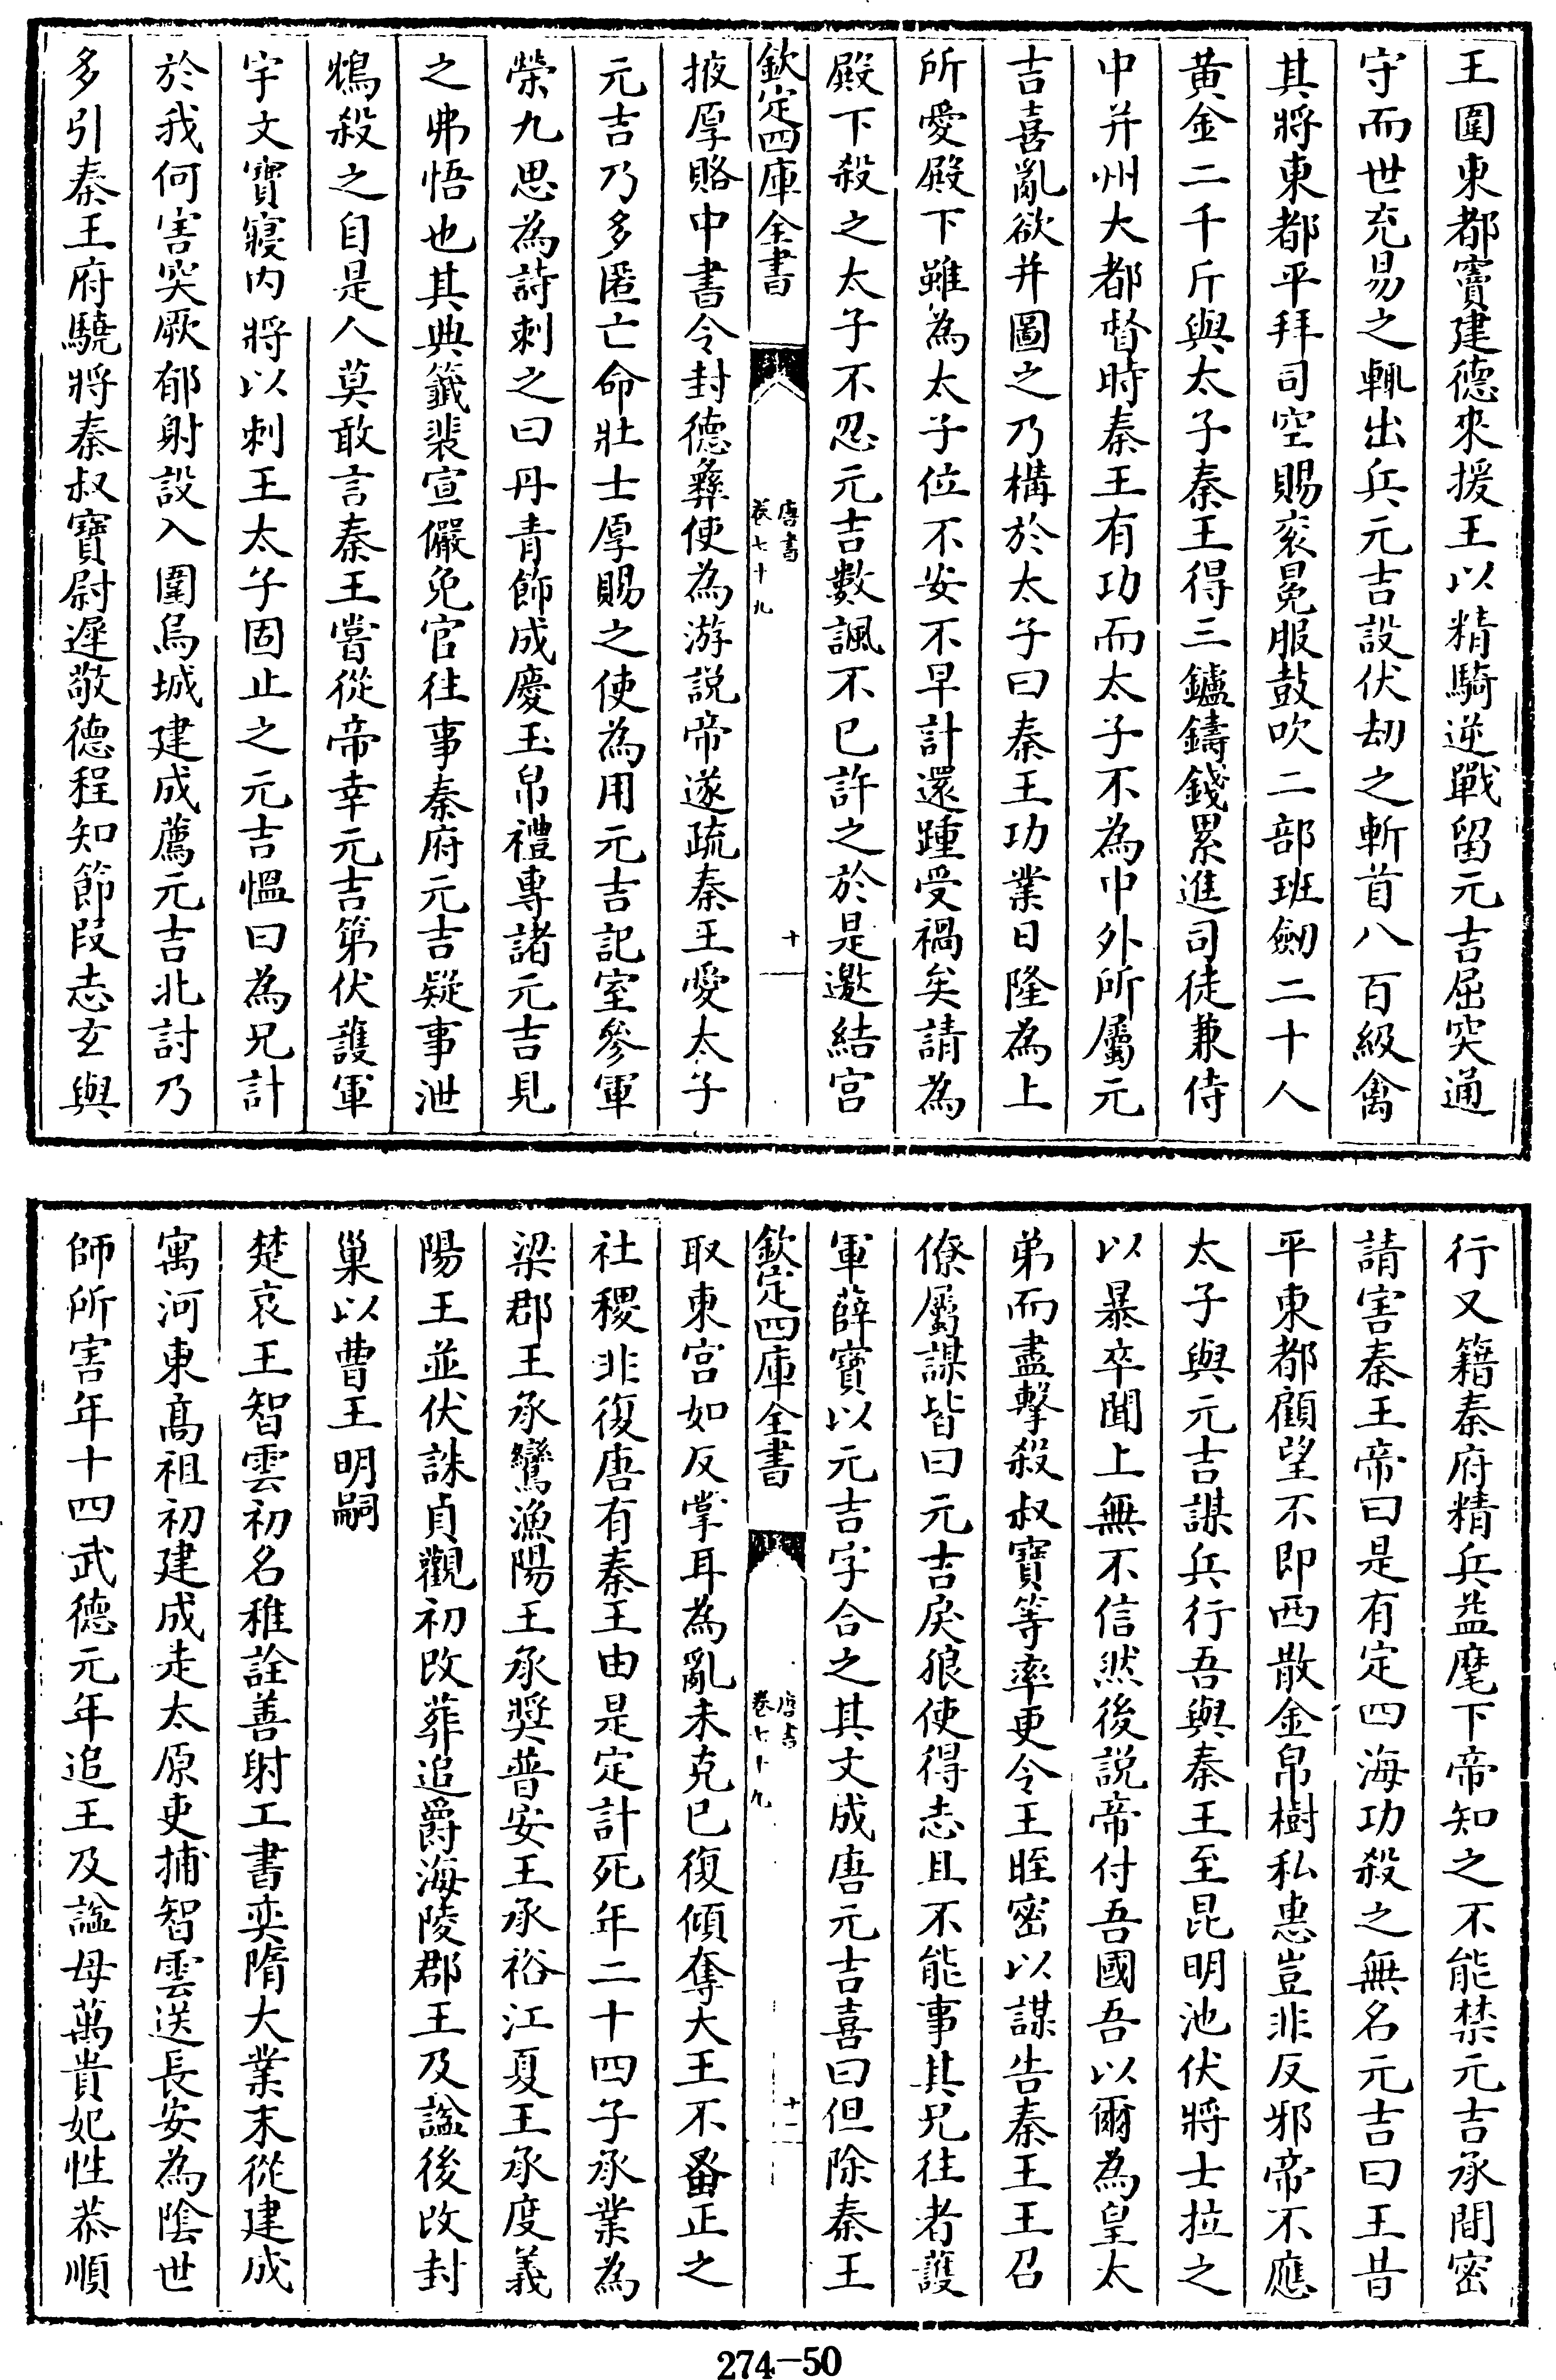 王圍東都竇建德來援王以精騎逆戰留元吉屈突通
守而世充易之輒出兵元吉設伏刼之斬首八百級禽
其將東都平拜司空賜衮冕服鼓吹二部班劒二十人
黃金二千斤與太子秦王得三鑪鑄錢累進司徒兼侍
中并州大都督時秦王有功而太子不為中外所屬元
吉喜亂欲并圖之乃構於太子曰秦王功業日隆為上
所愛殿下雖為太子位不安不早計還踵受禍矣請為
殿下殺之太子不忍元吉數諷不已許之於是邀結宮
欽定四庫全書
唐書
卷七十九
十
掖厚賂中書令封德彝使為游説帝遂疏秦王愛太子
元吉乃多匿亡命壯士厚賜之使為用元吉記室參軍
榮九思為詩刺之曰丹青飾成慶玉帛禮專諸元吉見
之弗悟也其典籖裴宣儼免官往事秦府元吉疑事泄
鴆殺之自是人莫敢言秦王嘗從帝幸元吉第伏護軍
宇文寶寢内將以刺王太子固止之元吉愠曰為兄計
於我何害突厥郁射設入圍烏城建成薦元吉北討乃
多引秦王府驍將秦叔寶尉遲敬德程知節段志玄與
行又籍秦府精兵益麾下帝知之不能禁元吉承間密
請害秦王帝曰是有定四海功殺之無名元吉曰王昔
平東都顧望不即西散金帛樹私惠豈非反邪帝不應
太子與元吉謀兵行吾與秦王至昆明池伏將士拉之
以暴卒聞上無不信然後説帝付吾國吾以爾為皇太
弟而盡擊殺叔寶等率更令王晊密以謀告秦王王召
僚屬謀皆曰元吉戾狼使得志且不能事其兄往者護
軍薛寶以元吉字合之其文成唐元吉喜曰但除秦王
欽定四庫全書
唐書
卷七十九
十一
取東宮如反掌耳為亂未克已復傾奪大王不蚤正之
社稷非復唐有秦王由是定計死年二十四子承業為
梁郡王承鸞漁陽王承奬普安王承裕江夏王承度義
陽王並伏誅貞觀初改葬追爵海陵郡王及諡後改封
巢以曹王明嗣
楚哀王智雲初名稚詮善射工書奕隋大業末從建成
寓河東高祖初建成走太原吏捕智雲送長安為陰世
師所害年十四武德元年追王及諡母萬貴妃性恭順
274-50